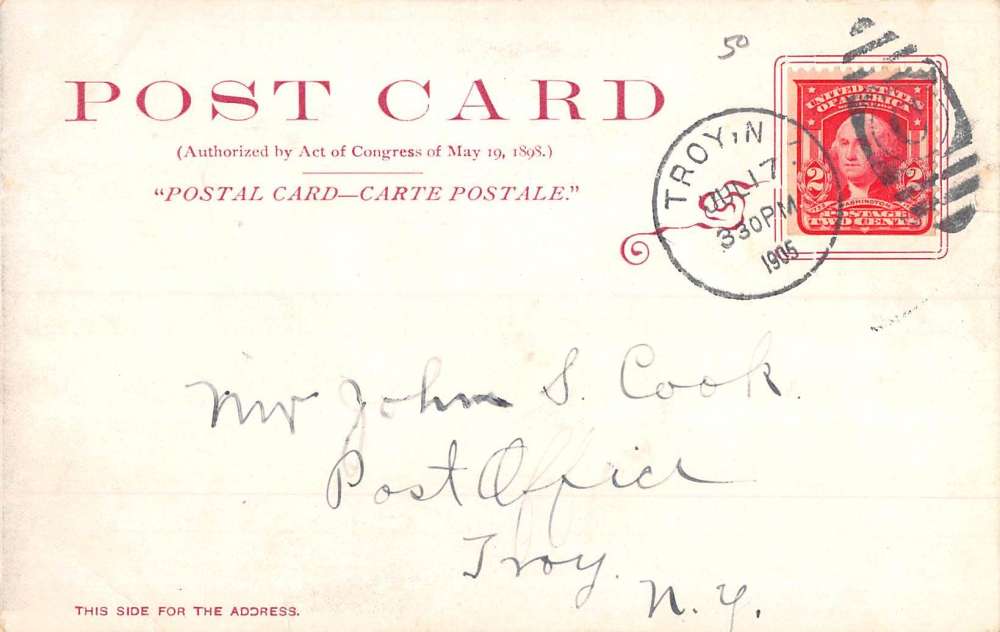 50
POST CARD
(Authorized by Act of Congress of May 19, 1898.)
"POSTAL CARD—CARTE POSTALE."
TROY, N
JUL 17
330PM
1905
UNITED STATES
OF AMERICA
2 2
WASHINGTON
POSTAGE
TWO CENTS
Mr John S. Cook.
Post Office
Troy.
N. Y.
THIS SIDE FOR THE ADDRESS.